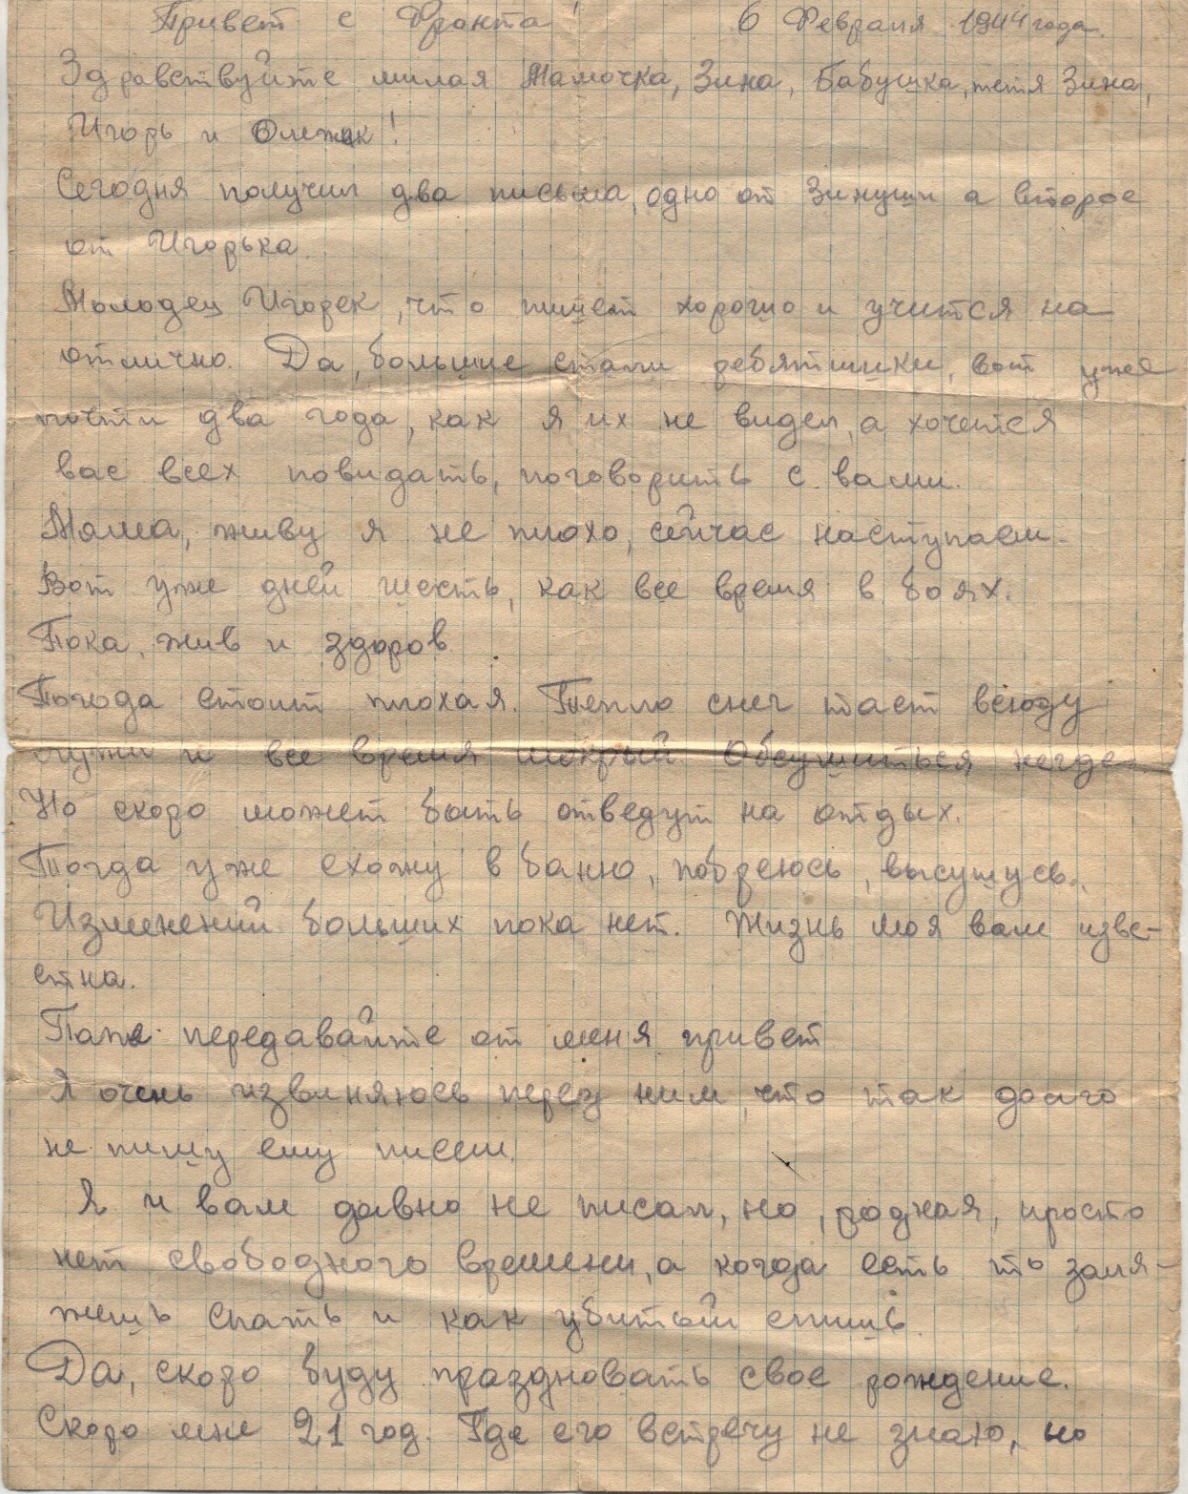 Привет с Фронта! 6 Февраля 1944 года.
Здравствуйте милая Мамочка, Зина, Бабушка, тетя Зина,
Игорь и Олежек!
Сегодня получил два письма, одно от Зинуши а второе
от Игорька.
Молодец Игорек, что пишет хорошо и учится на
отлично. Да, большие стали ребятишки, вот уже
почти два года, как я их не видел, а хочется
вас всех повидать, поговорить с вами.
Мама, живу я не плохо, сейчас наступаем.
Вот уже дней шесть, как все время в боях.
Пока, жив и здоров
Погода стоит плохая. Тепло снег тает всюду
лужи и все время мокрый Обсушиться негде.
Но скоро может быть отведут на отдых.
Тогда уже схожу в баню, побреюсь, высушусь.
Изменений больших пока нет. Жизнь моя вам изве-
стна.
Папе передавайте от меня привет
Я очень извиняюсь перед ним, что так долго
не пишу ему писем.
Я и вам давно не писал, но, родная, просто
нет свободного времени, а когда есть то заля-
жешь спать и как убитый спишь.
Да, скоро буду праздновать свое рождение.
Скоро мне 21 год. Где его встречу не знаю, но